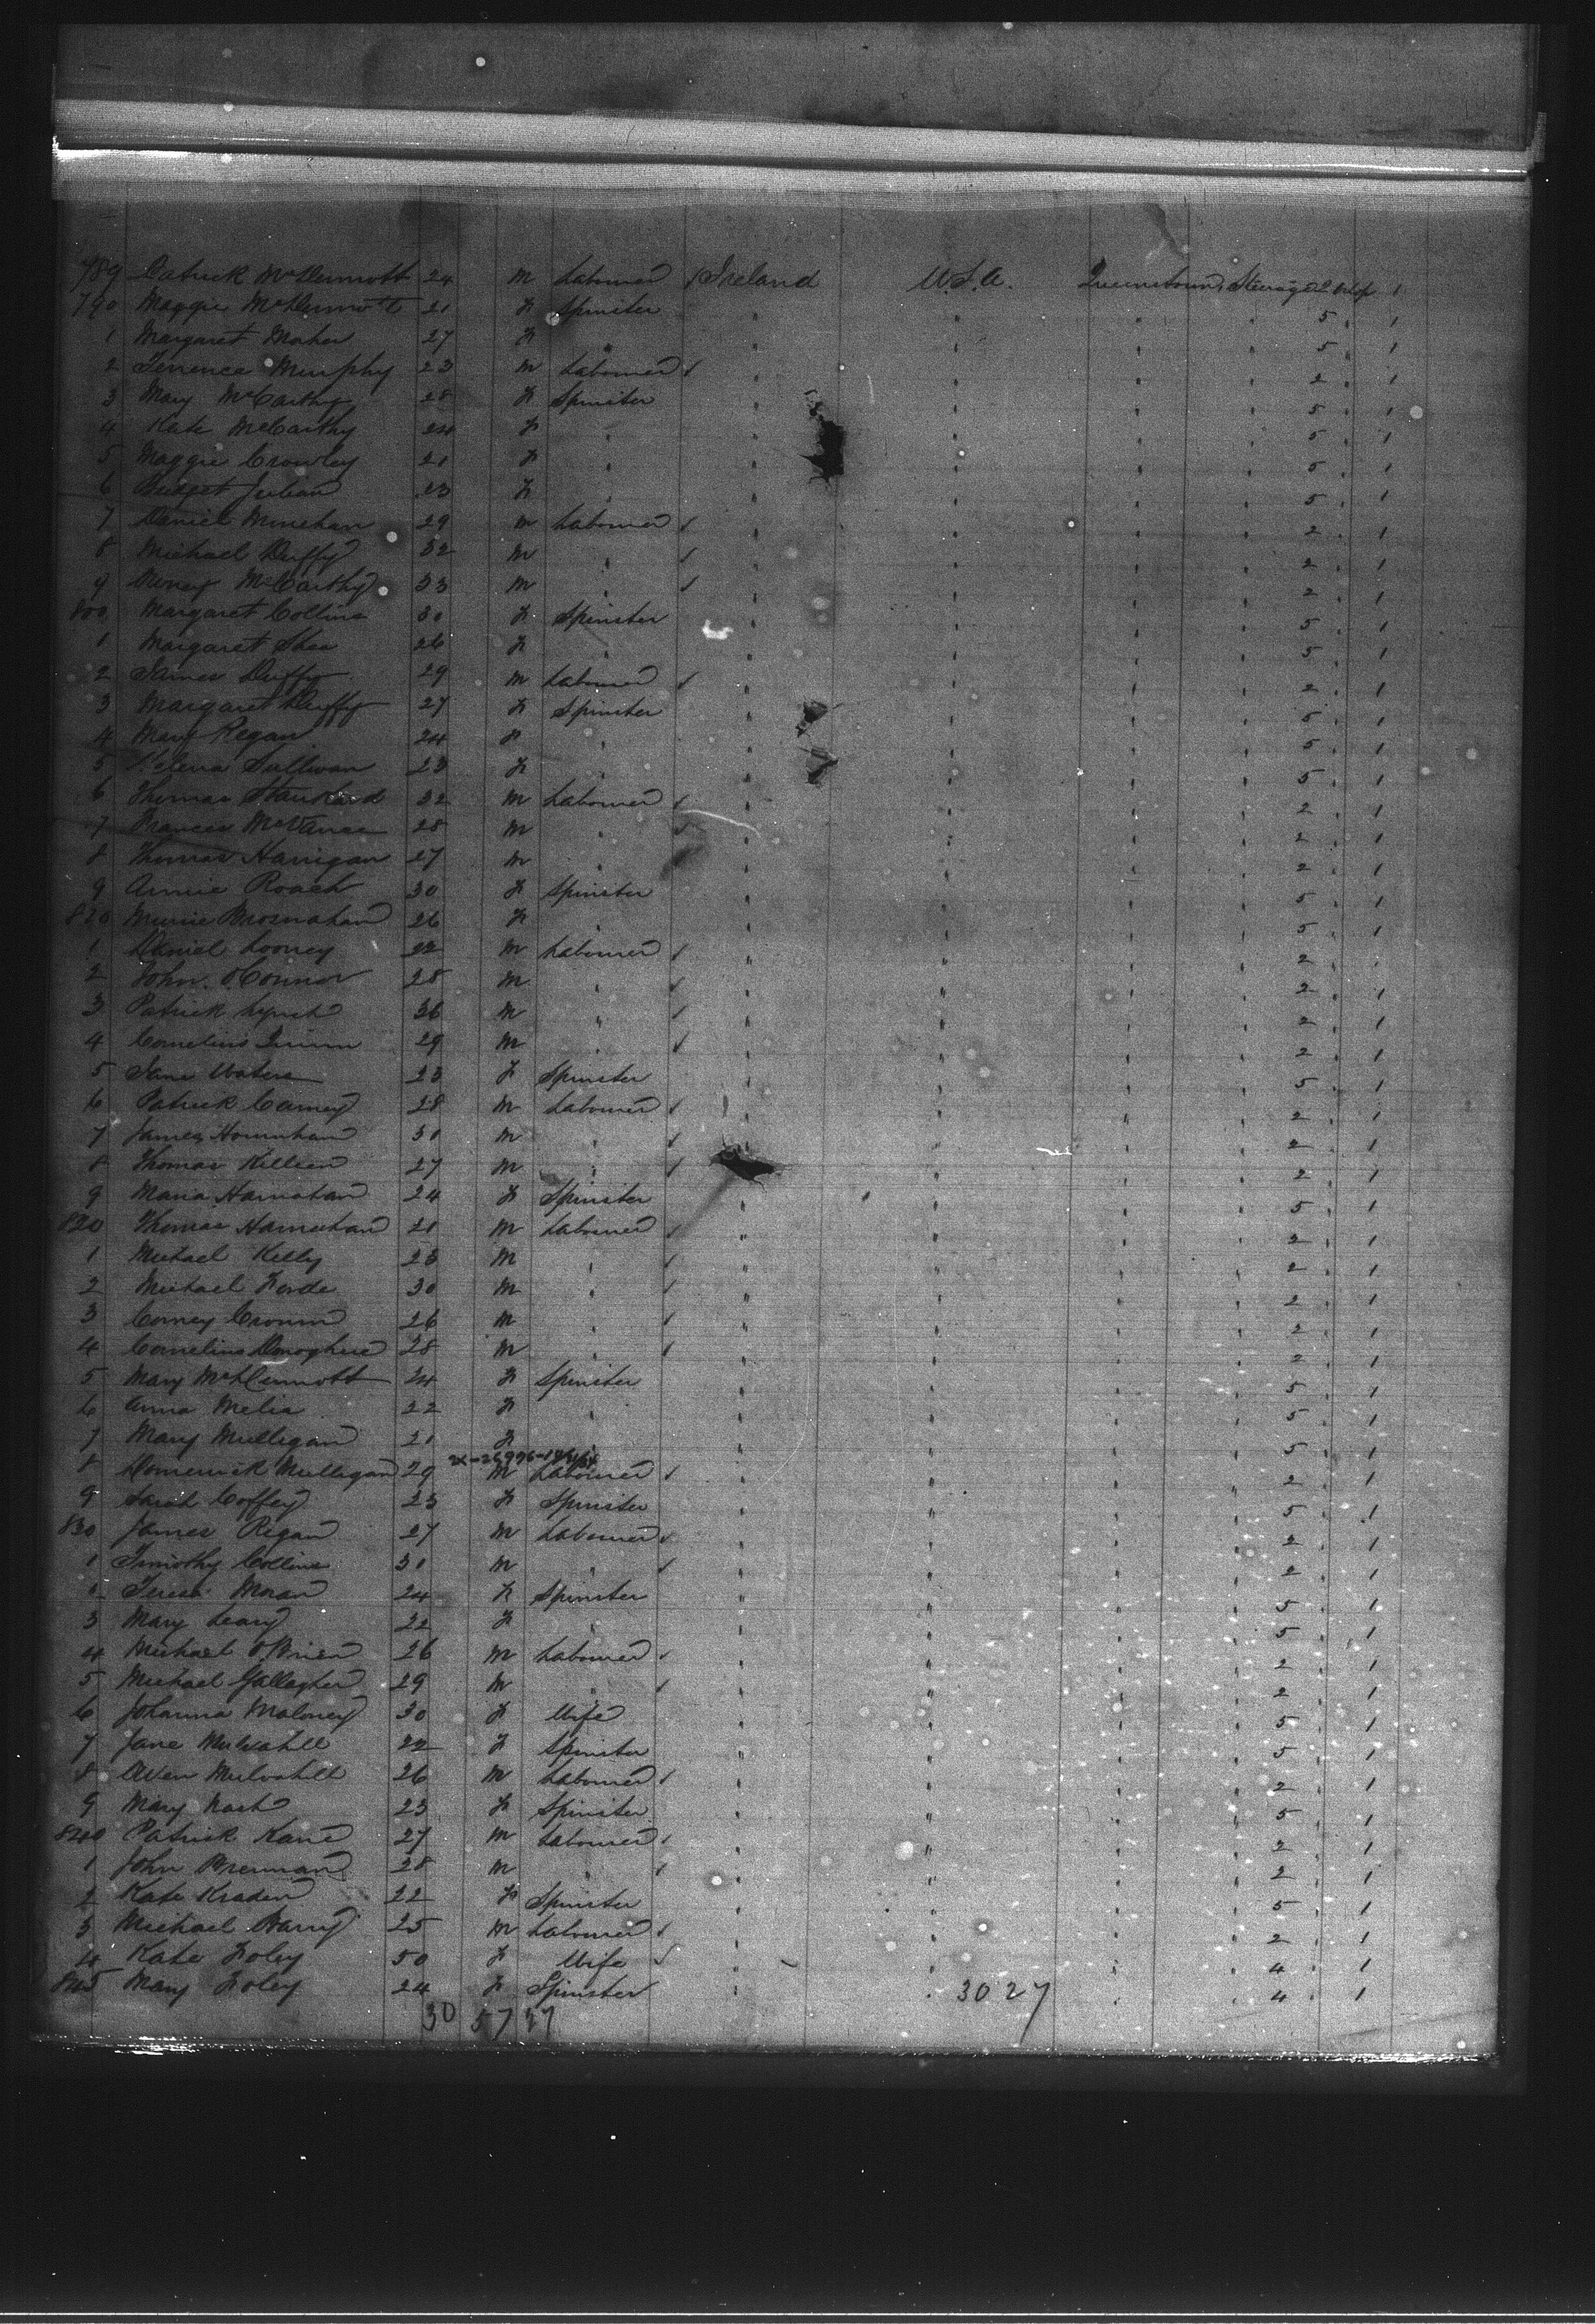 789 Patrick McDermott 24 M Labourer / Ireland U.S.A. Queenstown Steerage 2 1
790 Maggie McDermott 21 F Spinster " " " " 5 " 1
1 Margaret Maher 27 F " " " " " 5 " 1
2 Terence Murphy 23 M Labourer / " " " " 2 " 1
3 Mary McCarthy 28 F Spinster " " " " 5 " 1
4 Kate McCarthy 24 F " " " " " 5 " 1
5 Maggie Crowley 21 F " " " " " 5 " 1
6 Bridget 23 F " " " " " 5 " 1
7 Daniel Minehan 29 M Labourer / " " " " 2 " 1
8 Michael Duffy 32 M " / " " " " 2 " 1
9 McCarthy 33 M " / " " " " 2 " 1
800 Margaret Collins 30 F Spinster " " " " 5 " 1
1 Margaret Shea 26 F " " " " " 5 " 1
2 James Duffy 29 M Labourer / " " " " 2 " 1
3 Margaret Duffy 27 F Spinster " " " " 5 " 1
4 Mary Regan 24 F " " " " " 5 " 1
5 Sullivan 23 F " " " " " 5 " 1
6 Thomas 32 M Labourer / " " " " 2 " 1
7 Frances 28 M " / " " " " 2 " 1
8 Thomas Hanigan 27 M " " " " " 2 " 1
9 Annie Roach 30 F Spinster " " " " 5 " 1
810 Minnie Brosnahan 26 F " " " " " 5 " 1
1 Daniel Looney 22 M Labourer / " " " " 2 " 1
2 John O'Connor 28 M " / " " " " 2 " 1
3 Patrick Lynch 36 M " / " " " " 2 " 1
4 Cornelius 29 M " / " " " " 2 " 1
5 Jane Waters 23 F Spinster " " " " 5 " 1
6 Patrick Carney 28 M Labourer / " " " " 2 " 1
7 James 30 M " / " " " " 2 " 1
8 Thomas Killeen 27 M " / " " " " 2 " 1
9 Maria 24 F Spinster " " " " 5 " 1
820 Thomas 21 M Labourer / " " " " 2 " 1
1 Michael Kelly 23 M " / " " " " 2 " 1
2 Michael Forde 30 M " / " " " " 2 " 1
3 Corney Cronin 26 M " / " " " " 2 " 1
4 Cornelius Donoghue 28 M " / " " " " 2 " 1
5 Mary McDermott 24 F Spinster " " " " 5 " 1
6 Anna Melia 22 F " " " " " 5 " 1
7 Mary Mulligan 21 F " " " " " 5 " 1
8 Domenick Mulligan 29 M Labourer / " " " " 2 " 1
9 Sarah Coffey 23 F Spinster " " " " 5 " 1
830 James Regan 27 M Labourer / " " " " 2 " 1
1 Timothy Collins 30 M " / " " " " 2 " 1
2 Teresa Moran 24 F Spinster " " " " 5 " 1
3 Mary Leary 22 F " " " " " 5 " 1
4 Michael O'Brien 26 M Labourer / " " " " 2 " 1
5 Michael Gallagher 29 M " / " " " " 2 " 1
6 Johanna Maloney 30 F Wife " " " " 5 " 1
7 Jane Mulvahill 22 F Spinster " " " " 5 " 1
8 Owen Mulvahill 26 M Labourer / " " " " 2 " 1
9 Mary Nash 23 F Spinster " " " " 5 " 1
840 Patrick Kane 27 M Labourer / " " " " 2 " 1
1 John Brennan 28 M " / " " " " 2 " 1
2 Kate 22 F Spinster " " " " 5 " 1
3 Michael Barry 25 M Labourer / " " " " 2 " 1
4 Kate Foley 50 F Wife " " " " 4 " 1
845 Mary Foley 24 F Spinster " " " " 4 " 1
3027
30 57 27